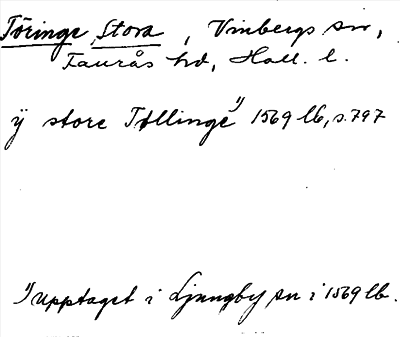 Töringe, Stora, Vinbergs sn,
Faurås hd, Hall. l.
ÿ store Tøllinge 1) 1569 lb, s. 797
1) Upptaget i Ljungby sn i 1569 lb.